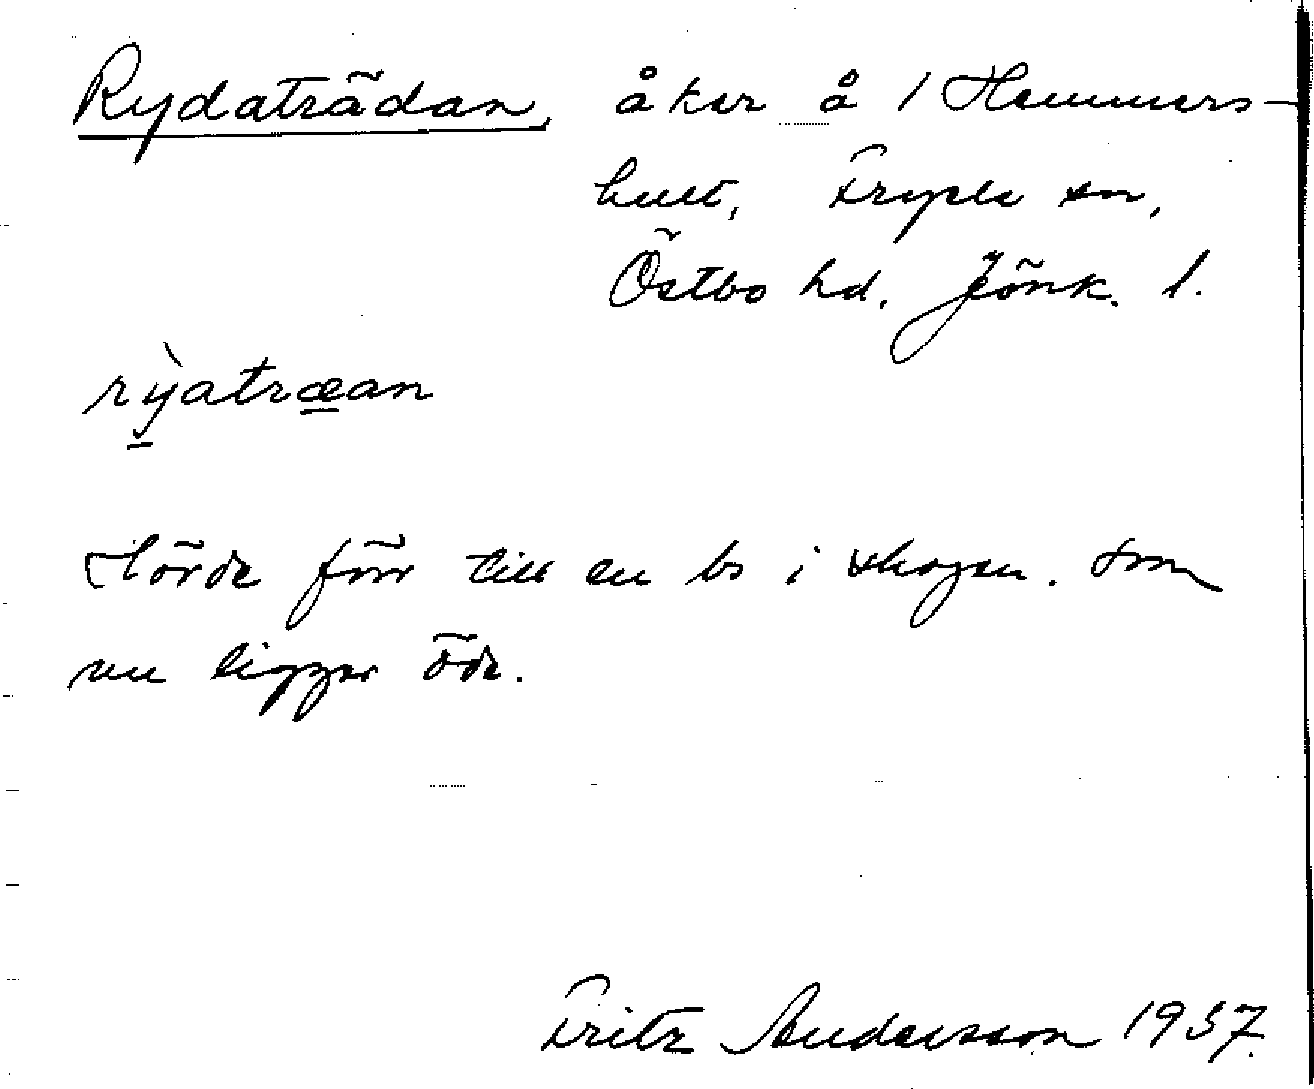 Rydaträdan, åker å 1 Hammers-
hult, Fryele sn,
Östbo hd. Jönk. l.
rỳatræan
Hörde förr till en bs i skogen. som
nu ligger öde.
Fritz Andersson 1937.